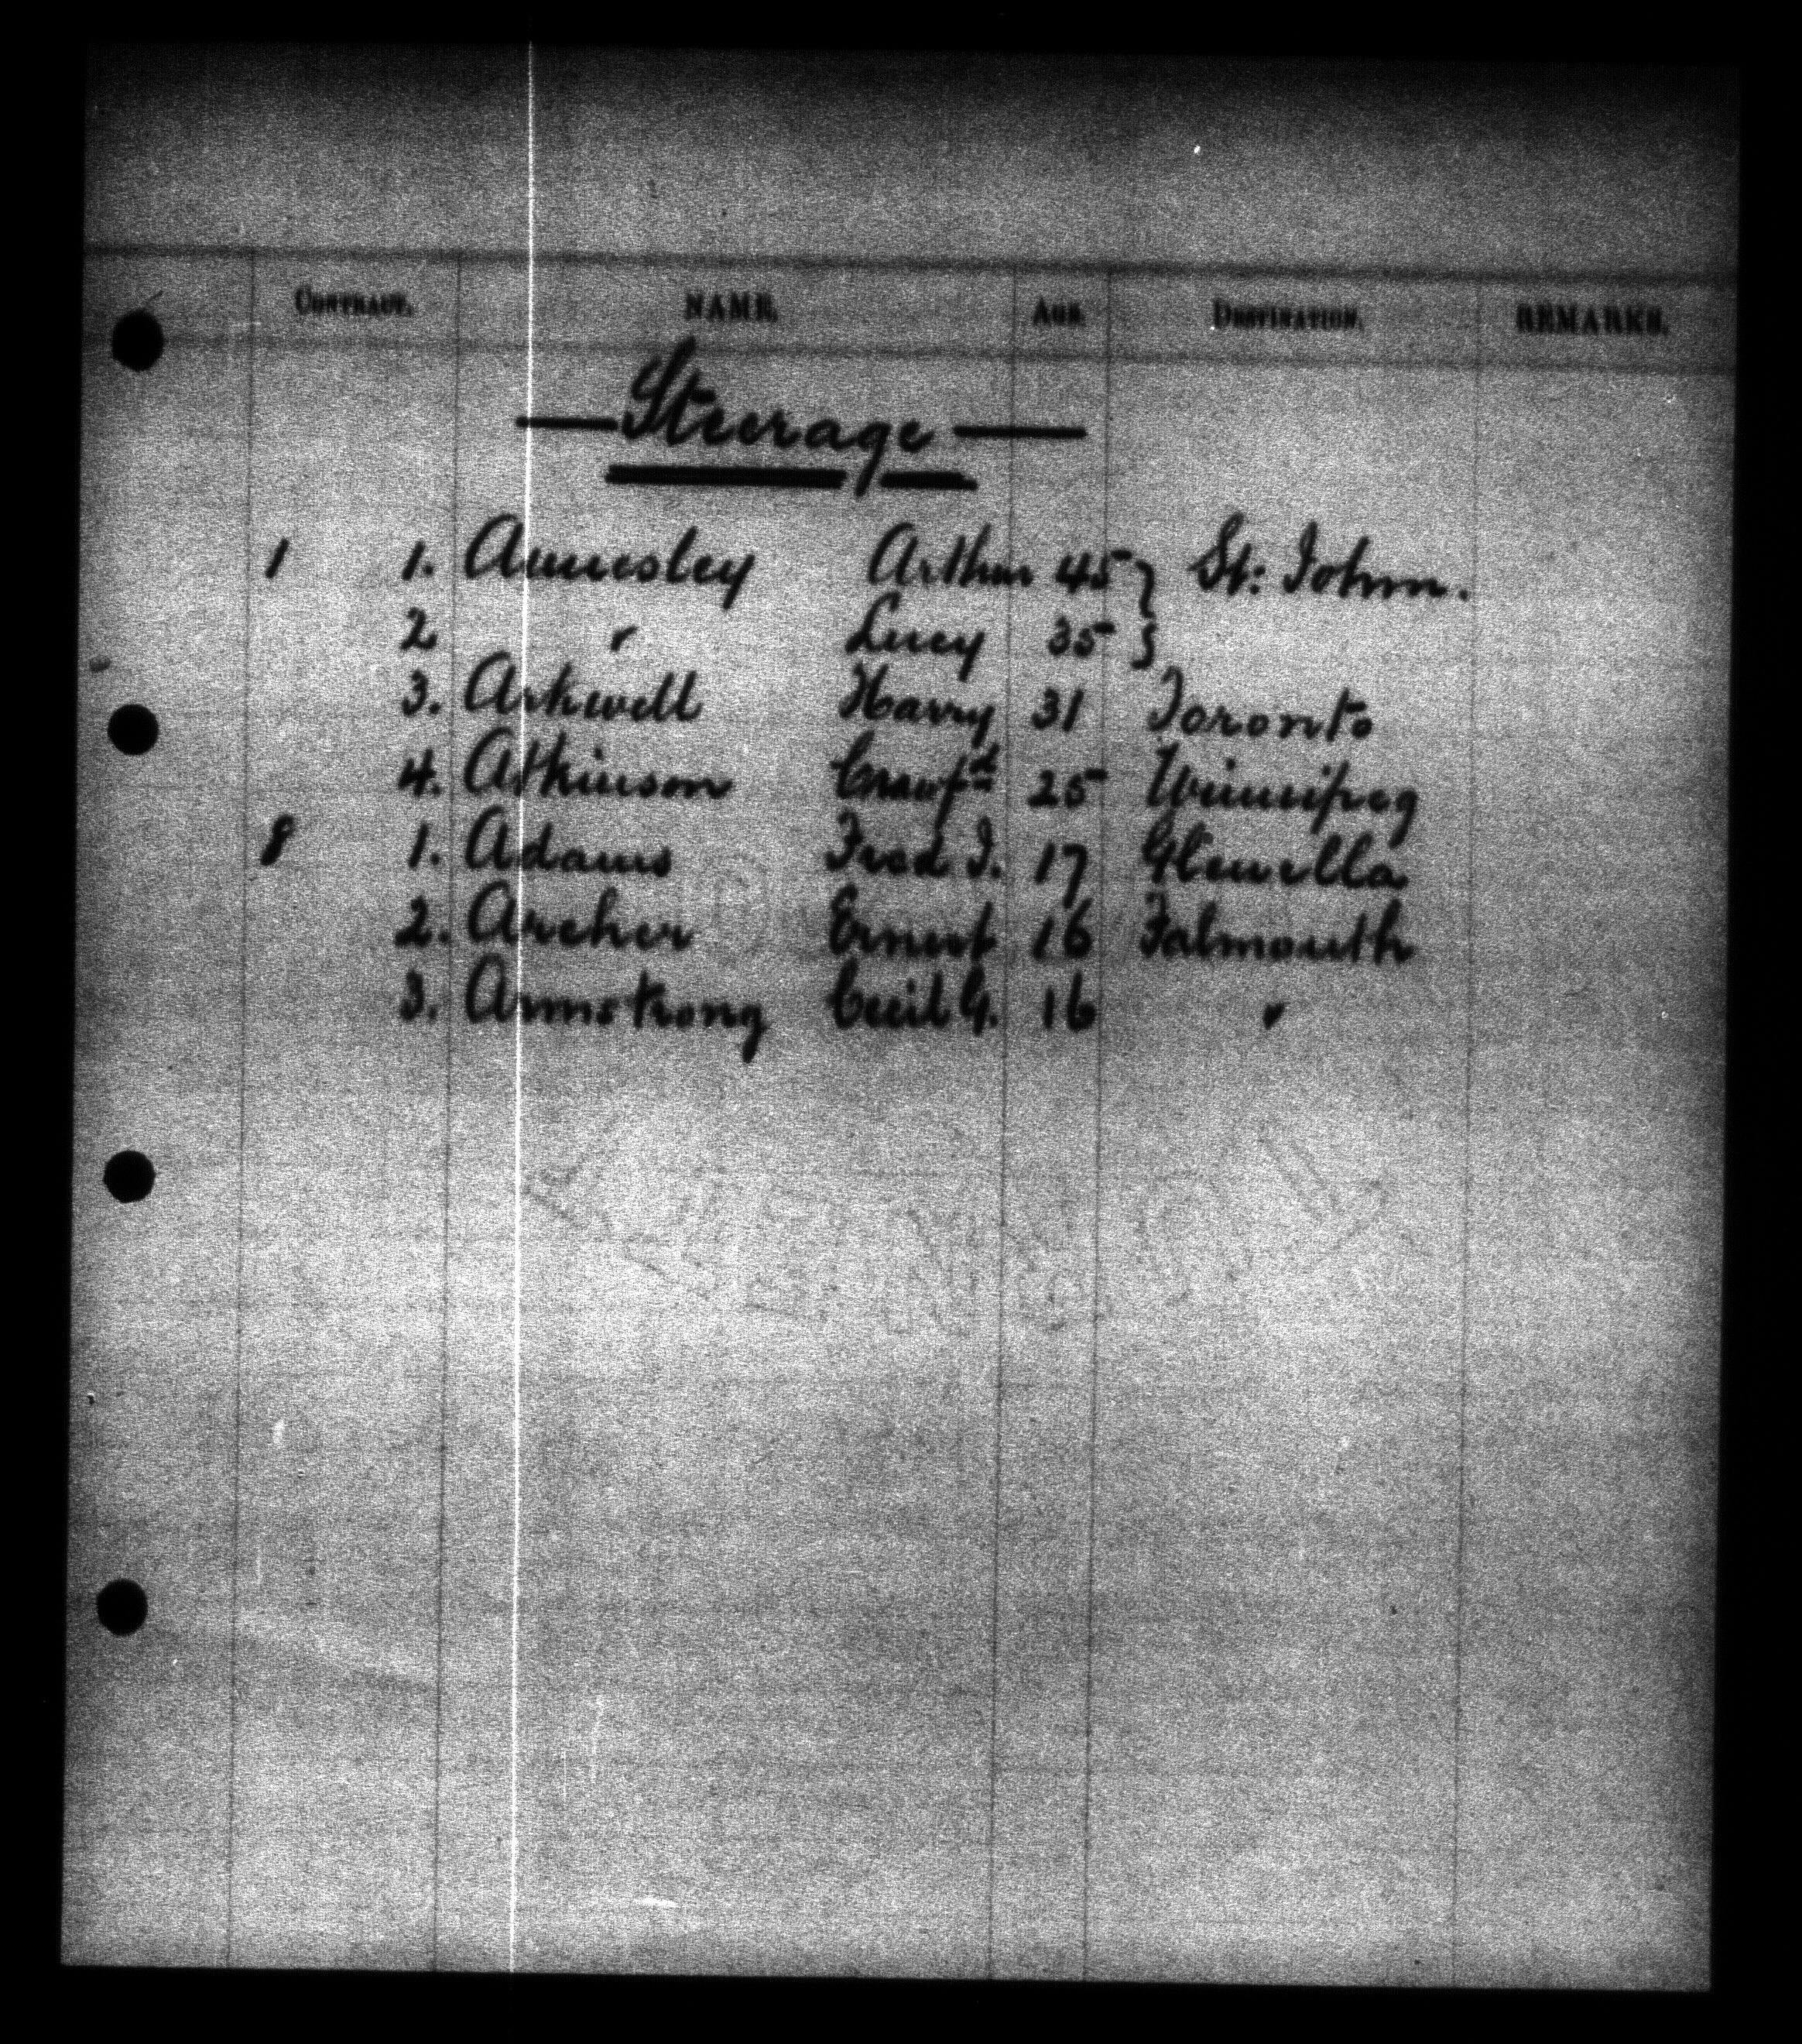 CONTRACT. NAME. AGE. DESTINATION. REMARKS.
— Steerage —
1 1. Annesley Arthur 45 } St: John.
2 " Lucy 35 }
3. Arkwell Harry 31 Toronto
4. Atkinson Crawfd 25 Winnipeg
8 1. Adams Fred J. 17 Glenella
2. Archer Ernest 16 Falmouth
3. Armstrong Cecil G. 16 "